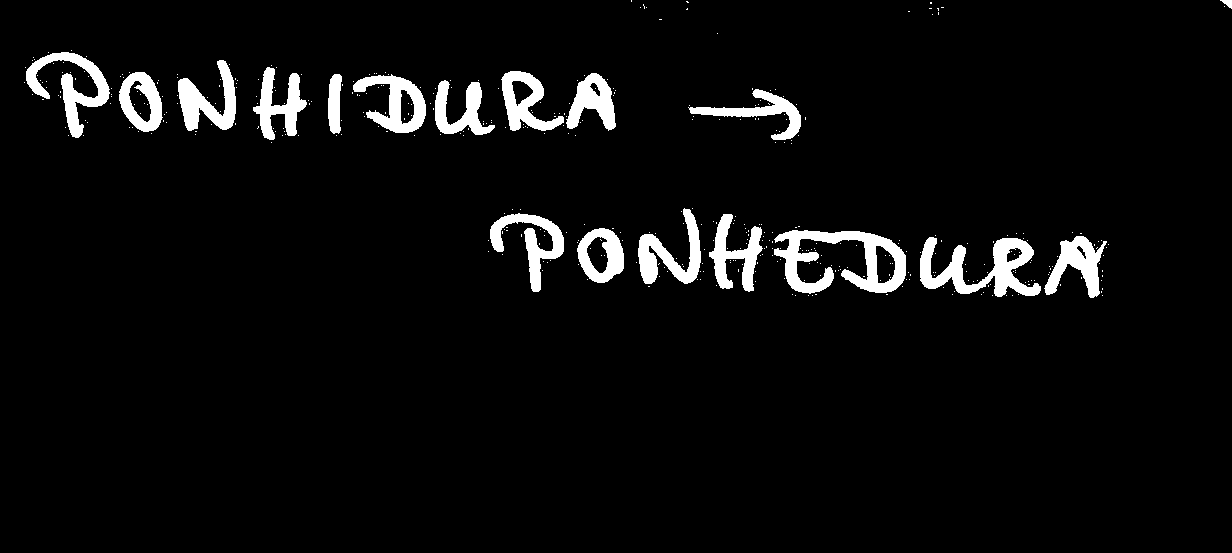 PONHIDURA →
PONHEDURA